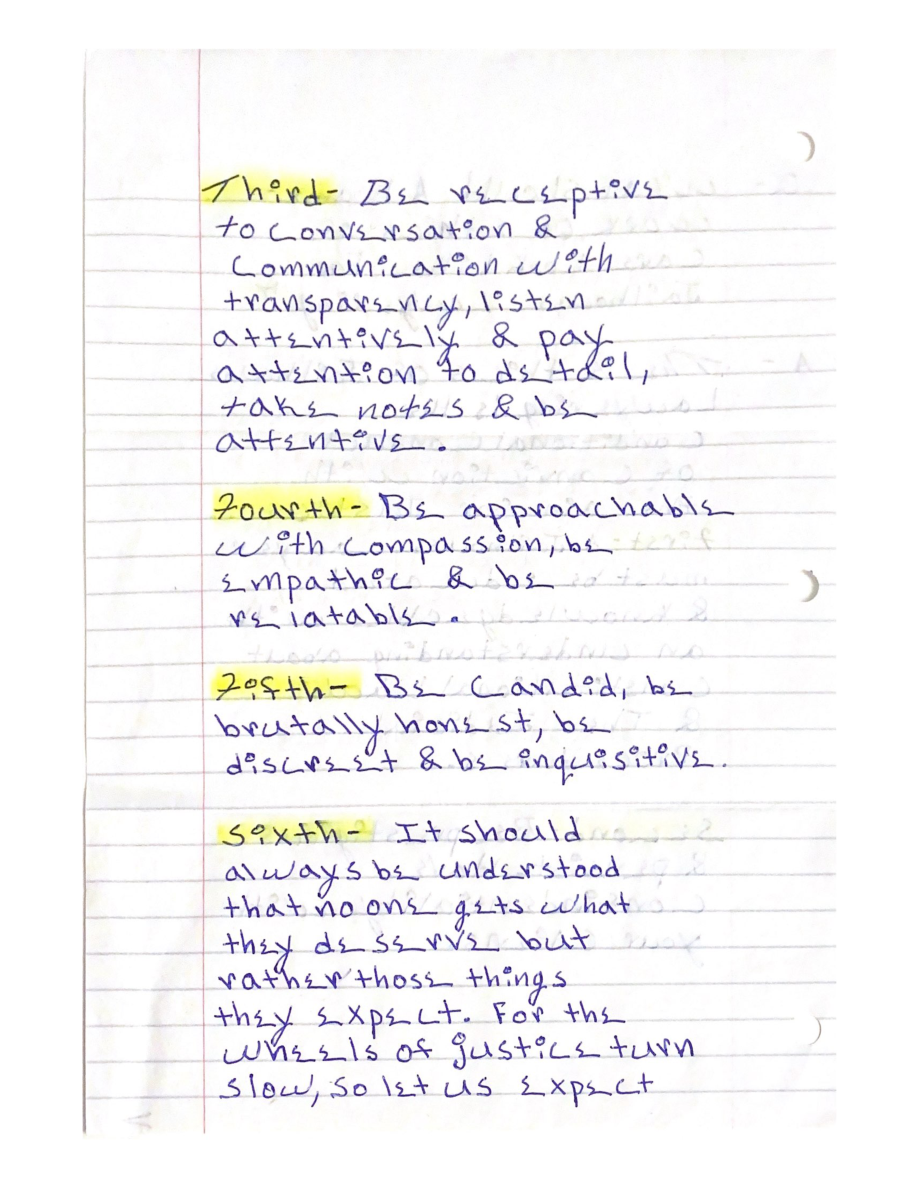 Third- Be receptive
to conversation &
Communication with
transparency, listen
attentively & pay
attention to detail,
take notes & be
attentive.
Fourth- Be approachable
with compassion, be
empathic & be
relatable.
Fifth- Be Candid, be
brutally honest, be
discreet & be inquisitive.
Sixth- It should
always be understood
that no one gets what
they deserve but
rather those things
they expect. For the
wheels of justice turn
slow, so let us expect